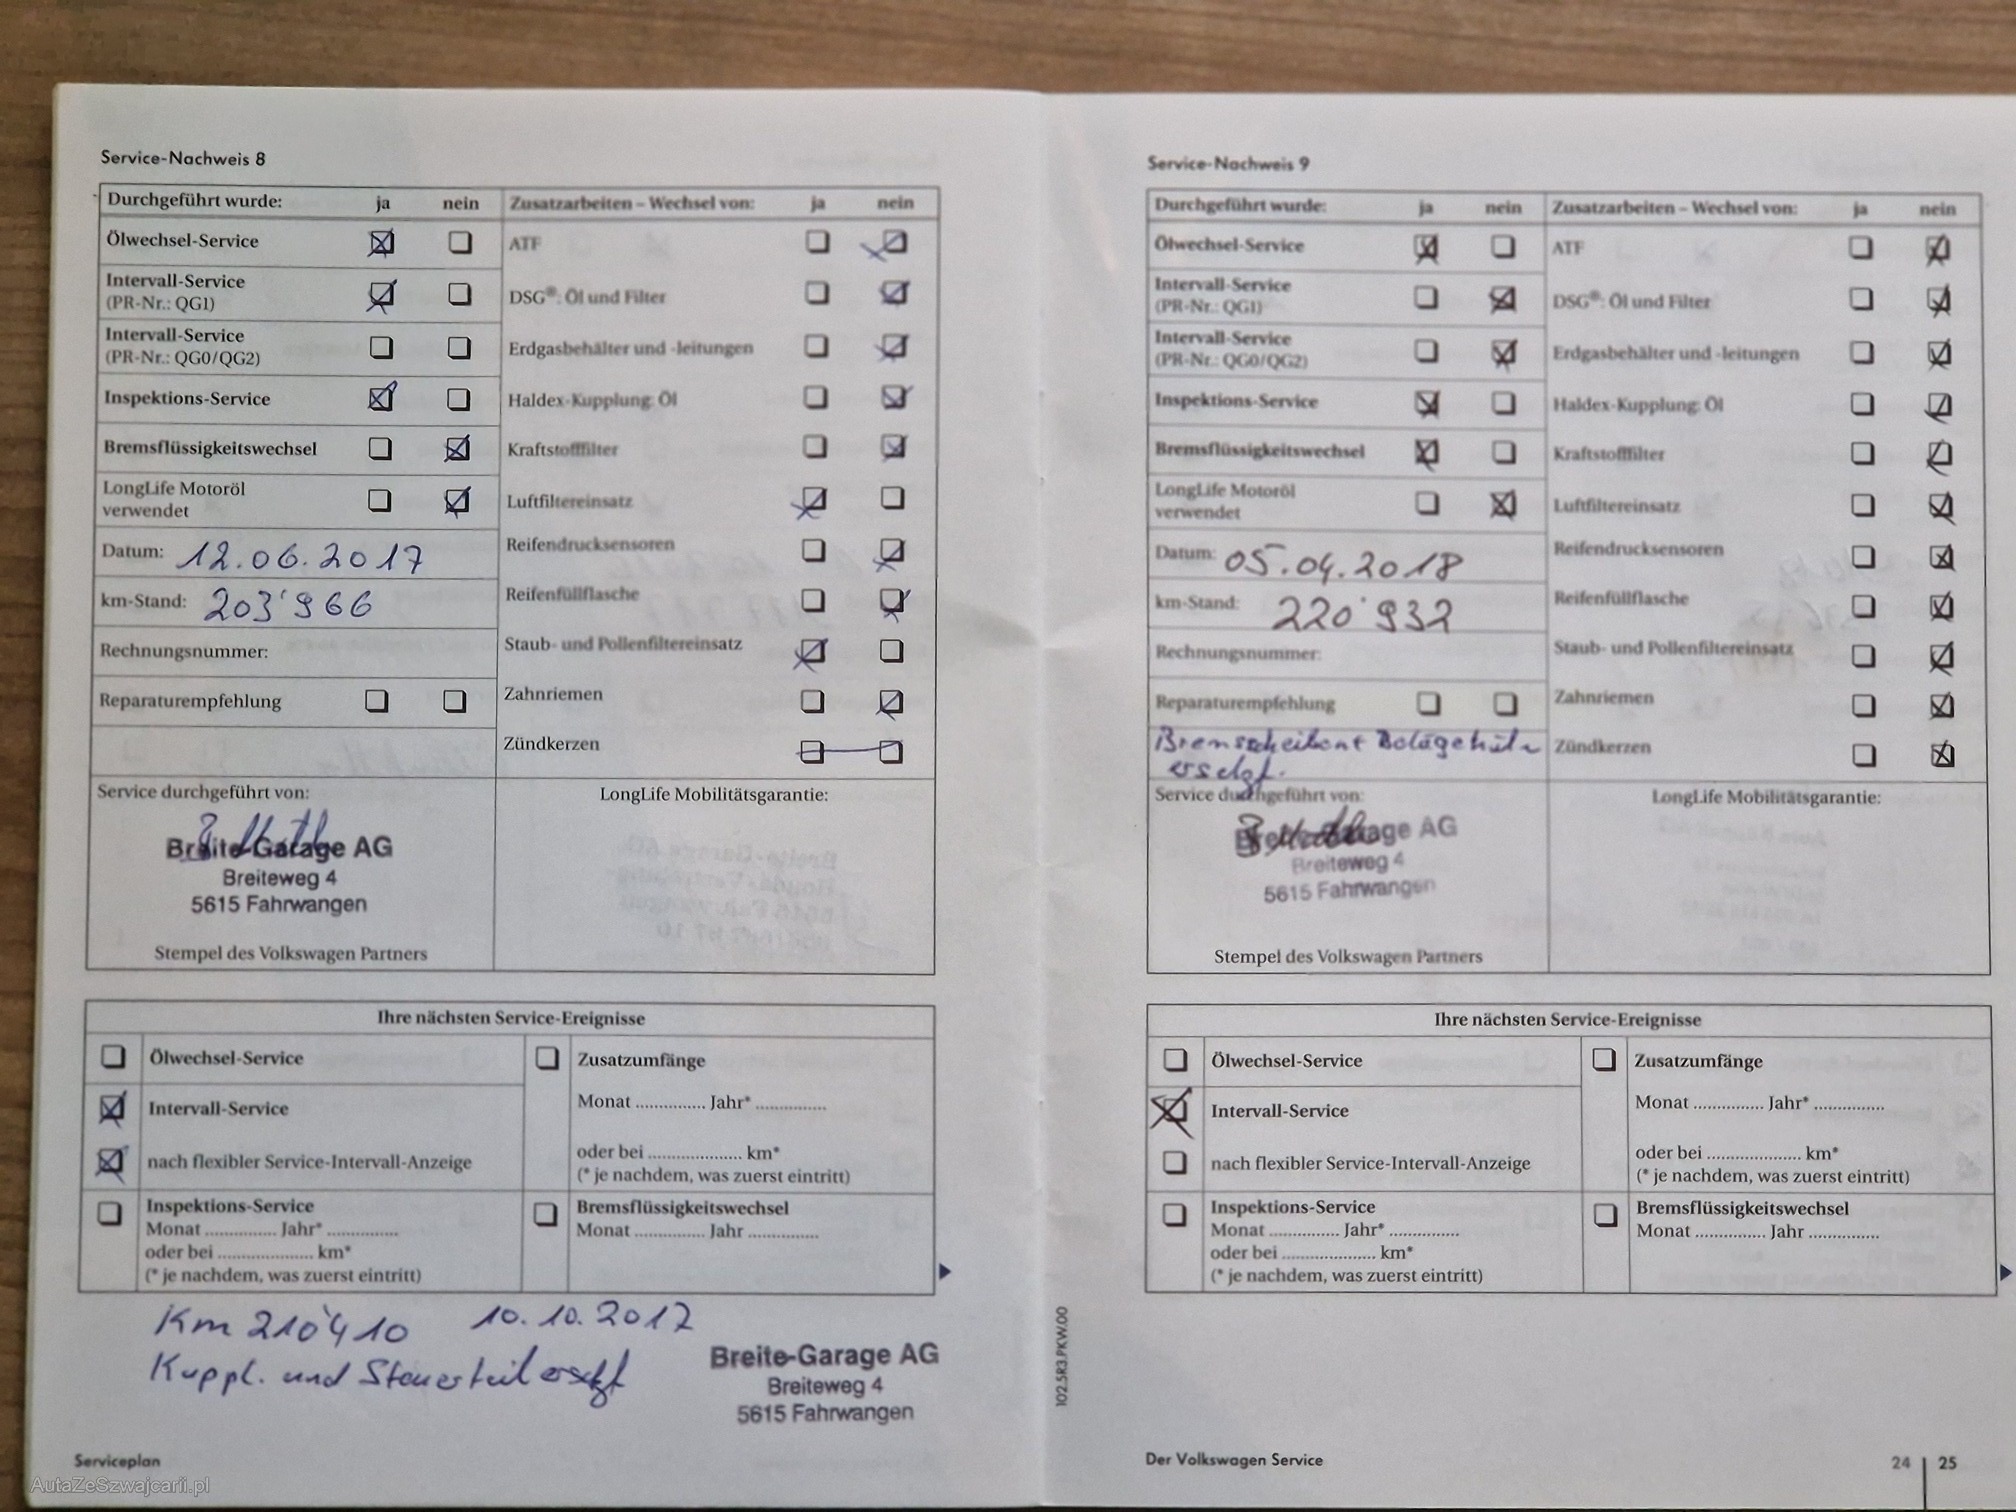 Service-Nachweis 8
Durchgeführt wurde: ja nein
Ölwechsel-Service
Intervall-Service
(PR-Nr.: QG1)
Intervall-Service
(PR-Nr.: QG0/QG2)
Inspektions-Service
Bremsflüssigkeitswechsel
LongLife Motoröl
verwendet
Datum: 12.06.2017
km-Stand: 203'966
Rechnungsnummer:
Reparaturempfehlung
Zusatzarbeiten – Wechsel von: ja nein
ATF
DSG®: Öl und Filter
Erdgasbehälter und -leitungen
Haldex-Kupplung: Öl
Kraftstofffilter
Luftfiltereinsatz
Reifendrucksensoren
Reifenfüllflasche
Staub- und Pollenfiltereinsatz
Zahnriemen
Zündkerzen
Service durchgeführt von:
Breite-Garage AG
Breiteweg 4
5615 Fahrwangen
Stempel des Volkswagen Partners
LongLife Mobilitätsgarantie:
Ihre nächsten Service-Ereignisse
Ölwechsel-Service
Intervall-Service
nach flexibler Service-Intervall-Anzeige
Inspektions-Service
Monat .............. Jahr* ..............
oder bei ................... km*
(* je nachdem, was zuerst eintritt)
Zusatzumfänge
Monat .............. Jahr* ..............
oder bei ................... km*
(* je nachdem, was zuerst eintritt)
Bremsflüssigkeitswechsel
Monat .............. Jahr ..............
Km 210'410 10.10.2017
Kuppl. und Steuerteil ersetzt
Breite-Garage AG
Breiteweg 4
5615 Fahrwangen
Serviceplan
AutaZeSzwajcarii.pl
Service-Nachweis 9
Durchgeführt wurde: ja nein
Ölwechsel-Service
Intervall-Service
(PR-Nr.: QG1)
Intervall-Service
(PR-Nr.: QG0/QG2)
Inspektions-Service
Bremsflüssigkeitswechsel
LongLife Motoröl
verwendet
Datum: 05.04.2018
km-Stand: 220'932
Rechnungsnummer:
Reparaturempfehlung
ersetzt.
Zusatzarbeiten – Wechsel von: ja nein
ATF
DSG®: Öl und Filter
Erdgasbehälter und -leitungen
Haldex-Kupplung: Öl
Kraftstofffilter
Luftfiltereinsatz
Reifendrucksensoren
Reifenfüllflasche
Staub- und Pollenfiltereinsatz
Zahnriemen
Zündkerzen
Service durchgeführt von:
Breite-Garage AG
Breiteweg 4
5615 Fahrwangen
Stempel des Volkswagen Partners
LongLife Mobilitätsgarantie:
Ihre nächsten Service-Ereignisse
Ölwechsel-Service
Intervall-Service
nach flexibler Service-Intervall-Anzeige
Inspektions-Service
Monat .............. Jahr* ..............
oder bei ................... km*
(* je nachdem, was zuerst eintritt)
Zusatzumfänge
Monat .............. Jahr* ..............
oder bei ................... km*
(* je nachdem, was zuerst eintritt)
Bremsflüssigkeitswechsel
Monat .............. Jahr ..............
102.5R3.PKW.00
Der Volkswagen Service
24 25